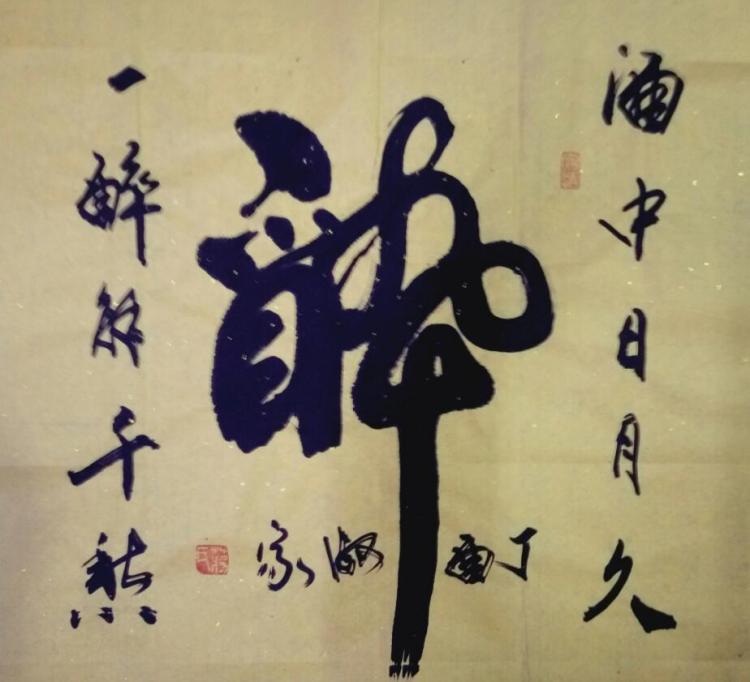 酒中日月久
醉
一醉解千愁
丁酉 家